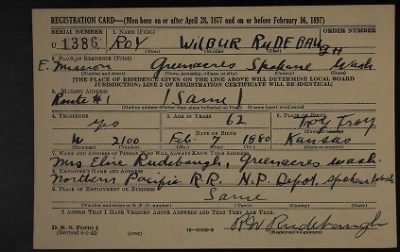 REGISTRATION CARD—(Men born on or after April 28, 1877 and on or before February 16, 1897)
SERIAL NUMBER 1. NAME (Print) ORDER NUMBER
U 1386 ROY WILBUR RUDEBAUGH
(First) (Middle) (Last)
2. PLACE OF RESIDENCE (Print)
E. Mission Greenacres Spokane Wash
(Number and street) (Town, township, village, or city) (County) (State)
[THE PLACE OF RESIDENCE GIVEN ON THE LINE ABOVE WILL DETERMINE LOCAL BOARD
JURISDICTION; LINE 2 OF REGISTRATION CERTIFICATE WILL BE IDENTICAL]
3. MAILING ADDRESS
Route #1 (Same)
(Mailing address other than place indicated on line 2. If same insert word same)
4. TELEPHONE 5. AGE IN YEARS 6. PLACE OF BIRTH
62 Troy
DATE OF BIRTH
2100 Feb. 7 1880 Kansas
(Exchange) (Number) (Mo.) (Day) (Yr.) (State or country)
7. NAME AND ADDRESS OF PERSON WHO WILL ALWAYS KNOW YOUR ADDRESS
Mrs Elsie Rudebaugh, Greenacres Wash.
8. EMPLOYER'S NAME AND ADDRESS
Northern Pacific R.R. N.P. Depot, Spokane Wash
9. PLACE OF EMPLOYMENT OR BUSINESS
Same
(Number and street or R. F. D. number) (Town) (County) (State)
I AFFIRM THAT I HAVE VERIFIED ABOVE ANSWERS AND THAT THEY ARE TRUE.
D. S. S. Form 1
(Revised 4-1-42) R W Rudebaugh
(Registrant's signature)